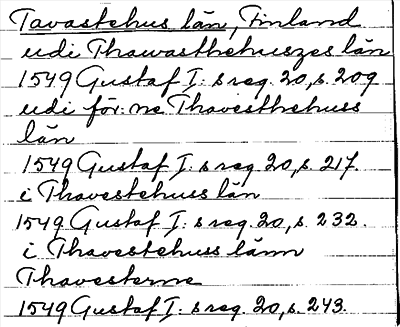 Tavastehus län, Finland
udi Thawasthehuszes län
1549 Gustaf I: s reg. 20, s. 209
udi för: ne Thavesthehuss
län
1549 Gustaf I: s reg. 20, s. 217.
i Thavestehuss län
1549 Gustaf I: s reg. 20, s. 232.
i Thavestehuss länn
Thavesterne
1549 Gustaf I: s reg. 20, s. 243.